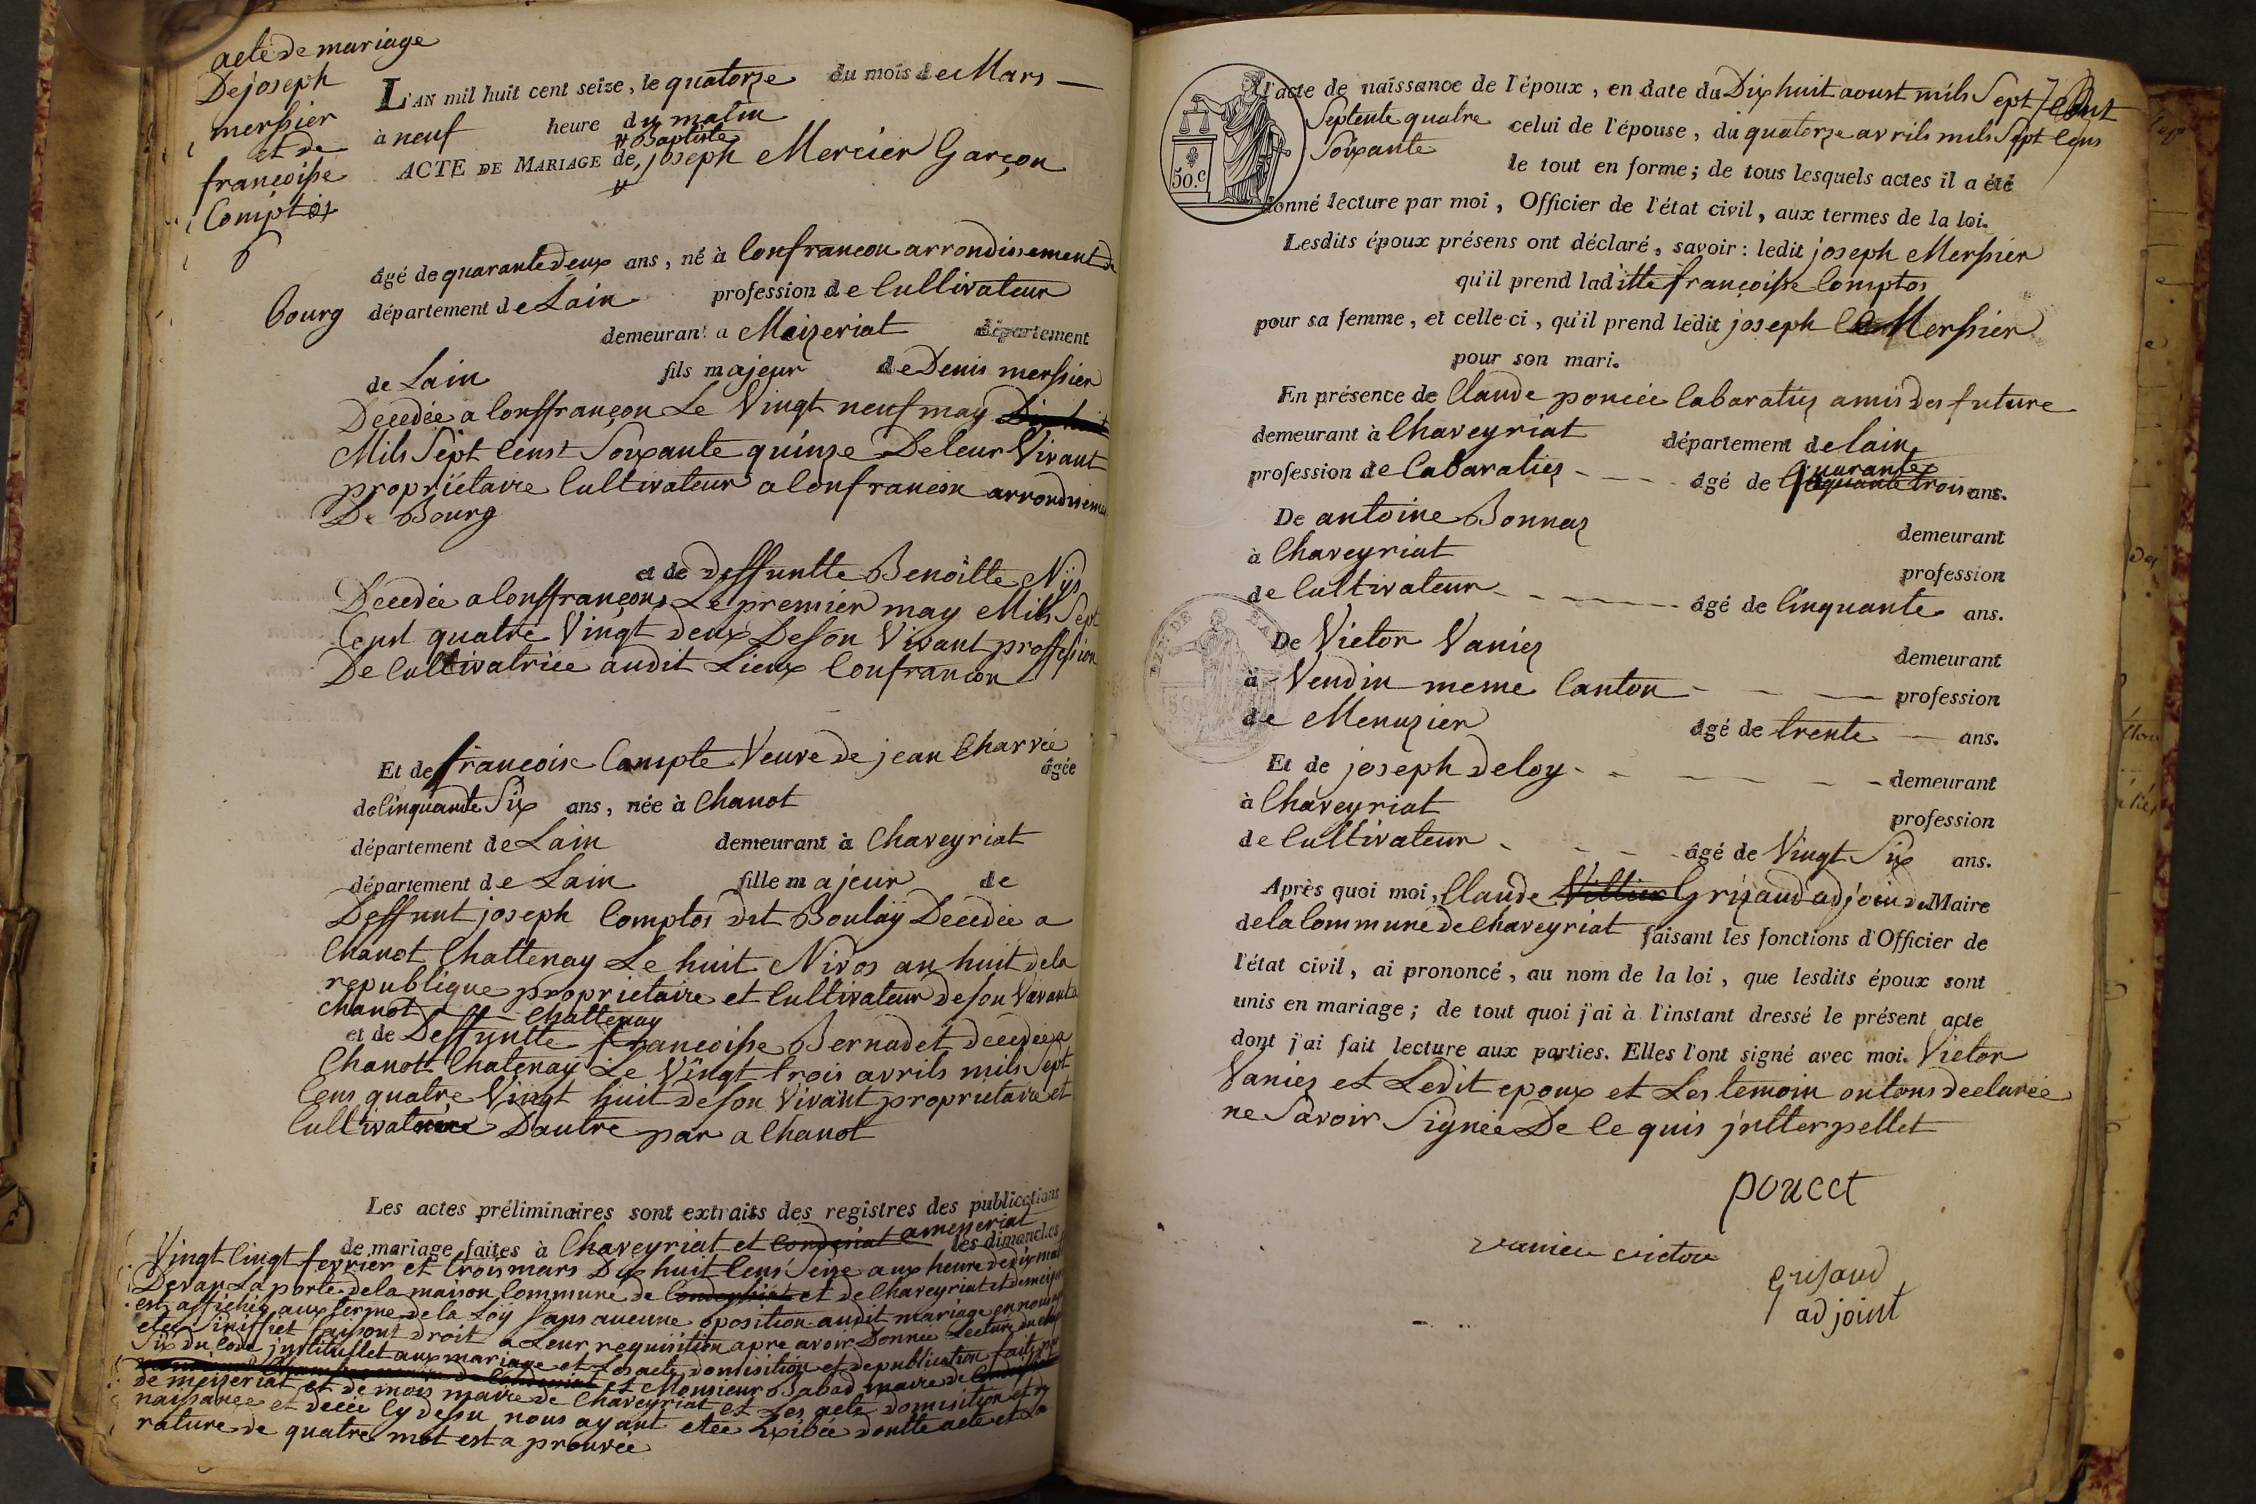 acte de mariage
De joseph
mersier
et de
françoisse
Comptos
6
L'AN mil huit cent seize, le quatorze du mois de Mars
à neuf heure du matin
Baptiste
ACTE DE MARIAGE de, joseph Mercier Garçon
âgé de quarante deux ans, né à Confrancon arrondissement de
bourg département de Lain profession de Cultivateur
demeurant a Maizeriat département
de Lain fils majeur de Denis mersier
Decedée a Conffrançon Le Vingt neuf may
Mils Sept Censt Soixante quinze De leur Vivant
propriétaire Cultivateur a Confrancon arrondisement
De Bourg
et de deffuntte Benoitte Nijs
Decedée a Conffrançons Le premier may Mils Sept
Censt quatre Vingt deux De son Vivant proffession
De Cultivatrice audit Lieux Confrancon
Et de françoise Compte Veuve de jean Charvée
âgée
de Cinquante Six ans, née à Chanot
département de Lain demeurant à Chaveyriat
département de Lain fille majeur de
Deffunt joseph Comptos dit Boulay Decedée a
Chanot Chattenay Le huit Nivos an huit de la
republique proprietaire et Cultivateur de son Vavant a
chanot Chattenay
et de Deffuntte francoisse Bernadet decedée a
Chanott Chatenay Le Vingt trois avrils mils Sept
Cens quatre Vingt huit de son Vivant proprietaire et
Cultivatrice D'autre par a Chanot
Les actes préliminaires sont extraits des registres des publications
de mariage faites à Chaveyriat et Conderiat a messeriat les dimanches
Vingt Cingt fevrier et trois mars Dix huit Cens Seize aux heure de dix mat
Devan La porte de la maison Commune de et de Chaveyriat et de
est affichée aux terme de la Loÿ Sans aucune oposition audit mariage en nous
etes Siniffiet faisont droit a Leur requisition apre avoir Donnée Lecture du
Six du Code justitullet aux mariage et Les acte domisition et de publication fait
et Monsieur Babad maire de
de meiseriat et de mois maire de Chaveyriat et Les acte domisition et
naissance et decée Cy desu nous ayant etee Exibée doutte acte et La
rature de quatre mot est a prouvée
l'acte de naissance de l'époux, en date du Dix huit aoust mils Sept Cent
Septente quatre celui de l'épouse, du quatorze avrils mils Sept Cens
Soixante le tout en forme; de tous lesquels actes il a été
50.c
donné lecture par moi, Officier de l'état civil, aux termes de la loi.
Lesdits époux présens ont déclaré, savoir: ledit joseph Mersier
qu'il prend laditte françoisse Comptos
pour sa femme, et celle-ci, qu'il prend ledit joseph Mersier
pour son mari.
En présence de Claude poncée Cabaratier amis des future
demeurant à Chaveyriat département de lain
profession de Cabaratier âgé de quarante trois ans.
De antoine Bonnaz demeurant
à Chaveyriat profession
de Cultivateur âgé de Cinquante ans.
De Victor Vanier demeurant
à Vendin meme Canton profession
de Menuzier âgé de trente ans.
Et de joseph deloy demeurant
à Chaveyriat profession
de Cultivateur âgé de Vingt Six ans.
Après quoi moi, Claude Grizaud adjoin de Maire
de la Commune de Chaveyriat faisant les fonctions d'Officier de
l'état civil, ai prononcé, au nom de la loi, que lesdits époux sont
unis en mariage; de tout quoi j'ai à l'instant dressé le présent acte
dont j'ai fait lecture aux parties. Elles l'ont signé avec moi. Victor
Vanier et Ledit epoux et Les temoin on tous declarée
ne Savoir Signée De Ce quis j'ntterpellet
poncet
vanier victor
grisaud
adjoint